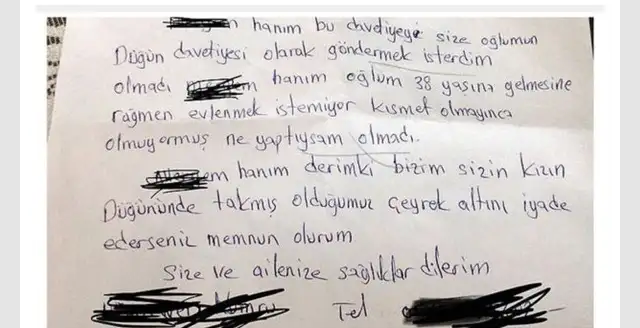 hanım bu davetiyeyi size oğlumun
Düğün davetiyesi olarak göndermek isterdim
olmadı hanım oğlum 38 yaşına gelmesine
rağmen evlenmek istemiyor kısmet olmayınca
olmuyormuş ne yaptıysam olmadı.
hanım derimki bizim sizin kızın
Düğününde takmış olduğumuz çeyrek altını iyade
ederseniz memnun olurum
Size ve ailenize sağlıklar dilerim
Tel